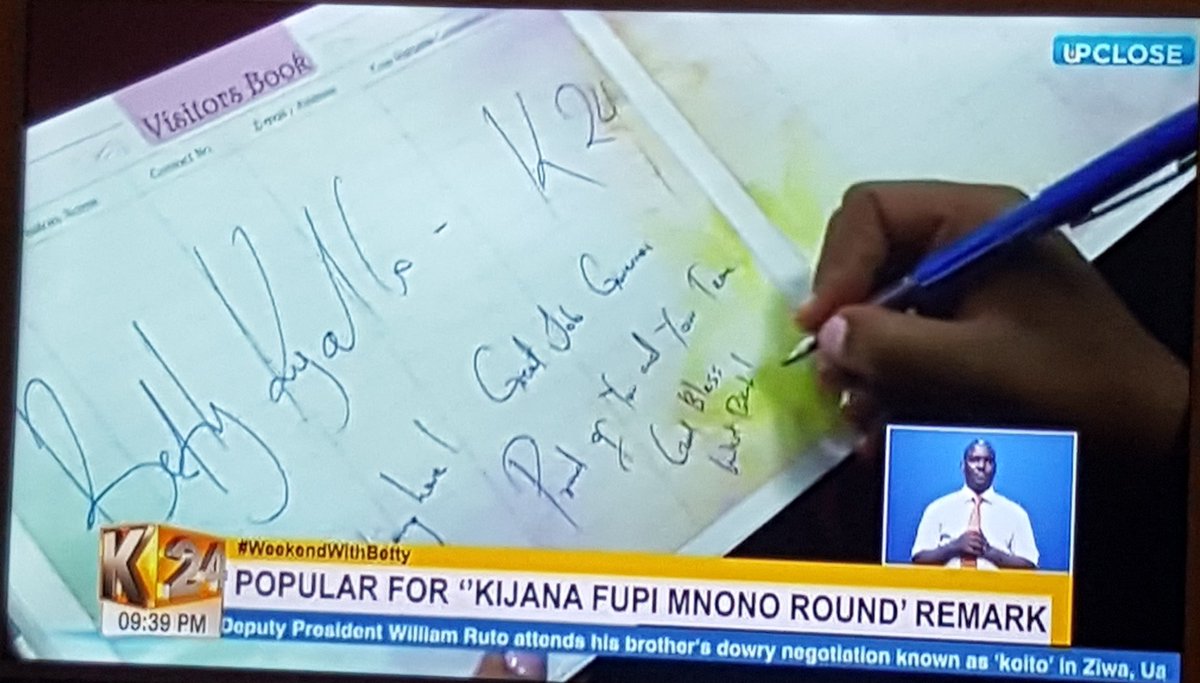 UPCLOSE
Visitors Book
Contact No.
Betty Kyallo - K24
Great Job Governor
Proud of You and Your Team
God Bless
West Pokot
K24
#WeekendWithBetty
POPULAR FOR ‘’KIJANA FUPI MNONO ROUND’ REMARK
09:39 PM
Deputy President William Ruto attends his brother's dowry negotiation known as 'koito' in Ziwa, Ua